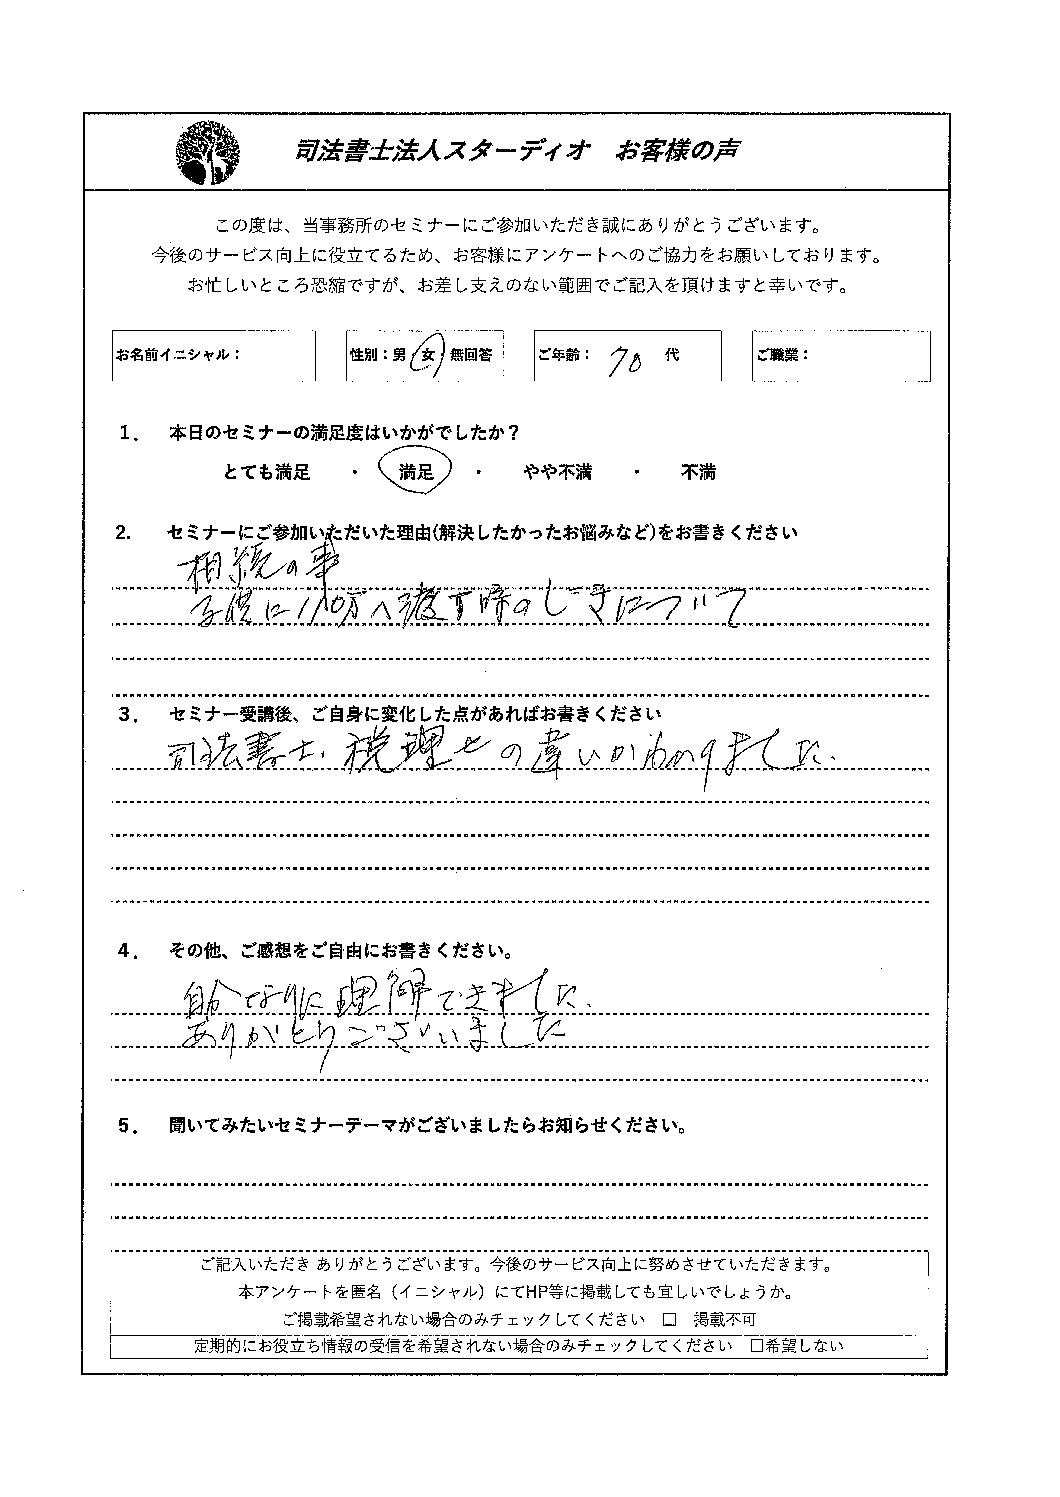 司法書士法人スターディオ　お客様の声
この度は、当事務所のセミナーにご参加いただき誠にありがとうございます。
今後のサービス向上に役立てるため、お客様にアンケートへのご協力をお願いしております。
お忙しいところ恐縮ですが、お差し支えのない範囲でご記入を頂けますと幸いです。
お名前イニシャル： 性別：男 女 無回答 ご年齢： 70 代 ご職業：
1． 本日のセミナーの満足度はいかがでしたか？
とても満足 ・ 満足 ・ やや不満 ・ 不満
2. セミナーにご参加いただいた理由(解決したかったお悩みなど)をお書きください
相続の事
子供に110万へ渡す時の しについて
3． セミナー受講後、ご自身に変化した点があればお書きください
司法書士．税理士の違いがわかりました．
4． その他、ご感想をご自由にお書きください。
自分なりに理解できました．
ありがとうございました
5． 聞いてみたいセミナーテーマがございましたらお知らせください。
ご記入いただき ありがとうございます。今後のサービス向上に努めさせていただきます。
本アンケートを匿名（イニシャル）にてHP等に掲載しても宜しいでしょうか。
ご掲載希望されない場合のみチェックしてください　□　掲載不可
定期的にお役立ち情報の受信を希望されない場合のみチェックしてください　□希望しない